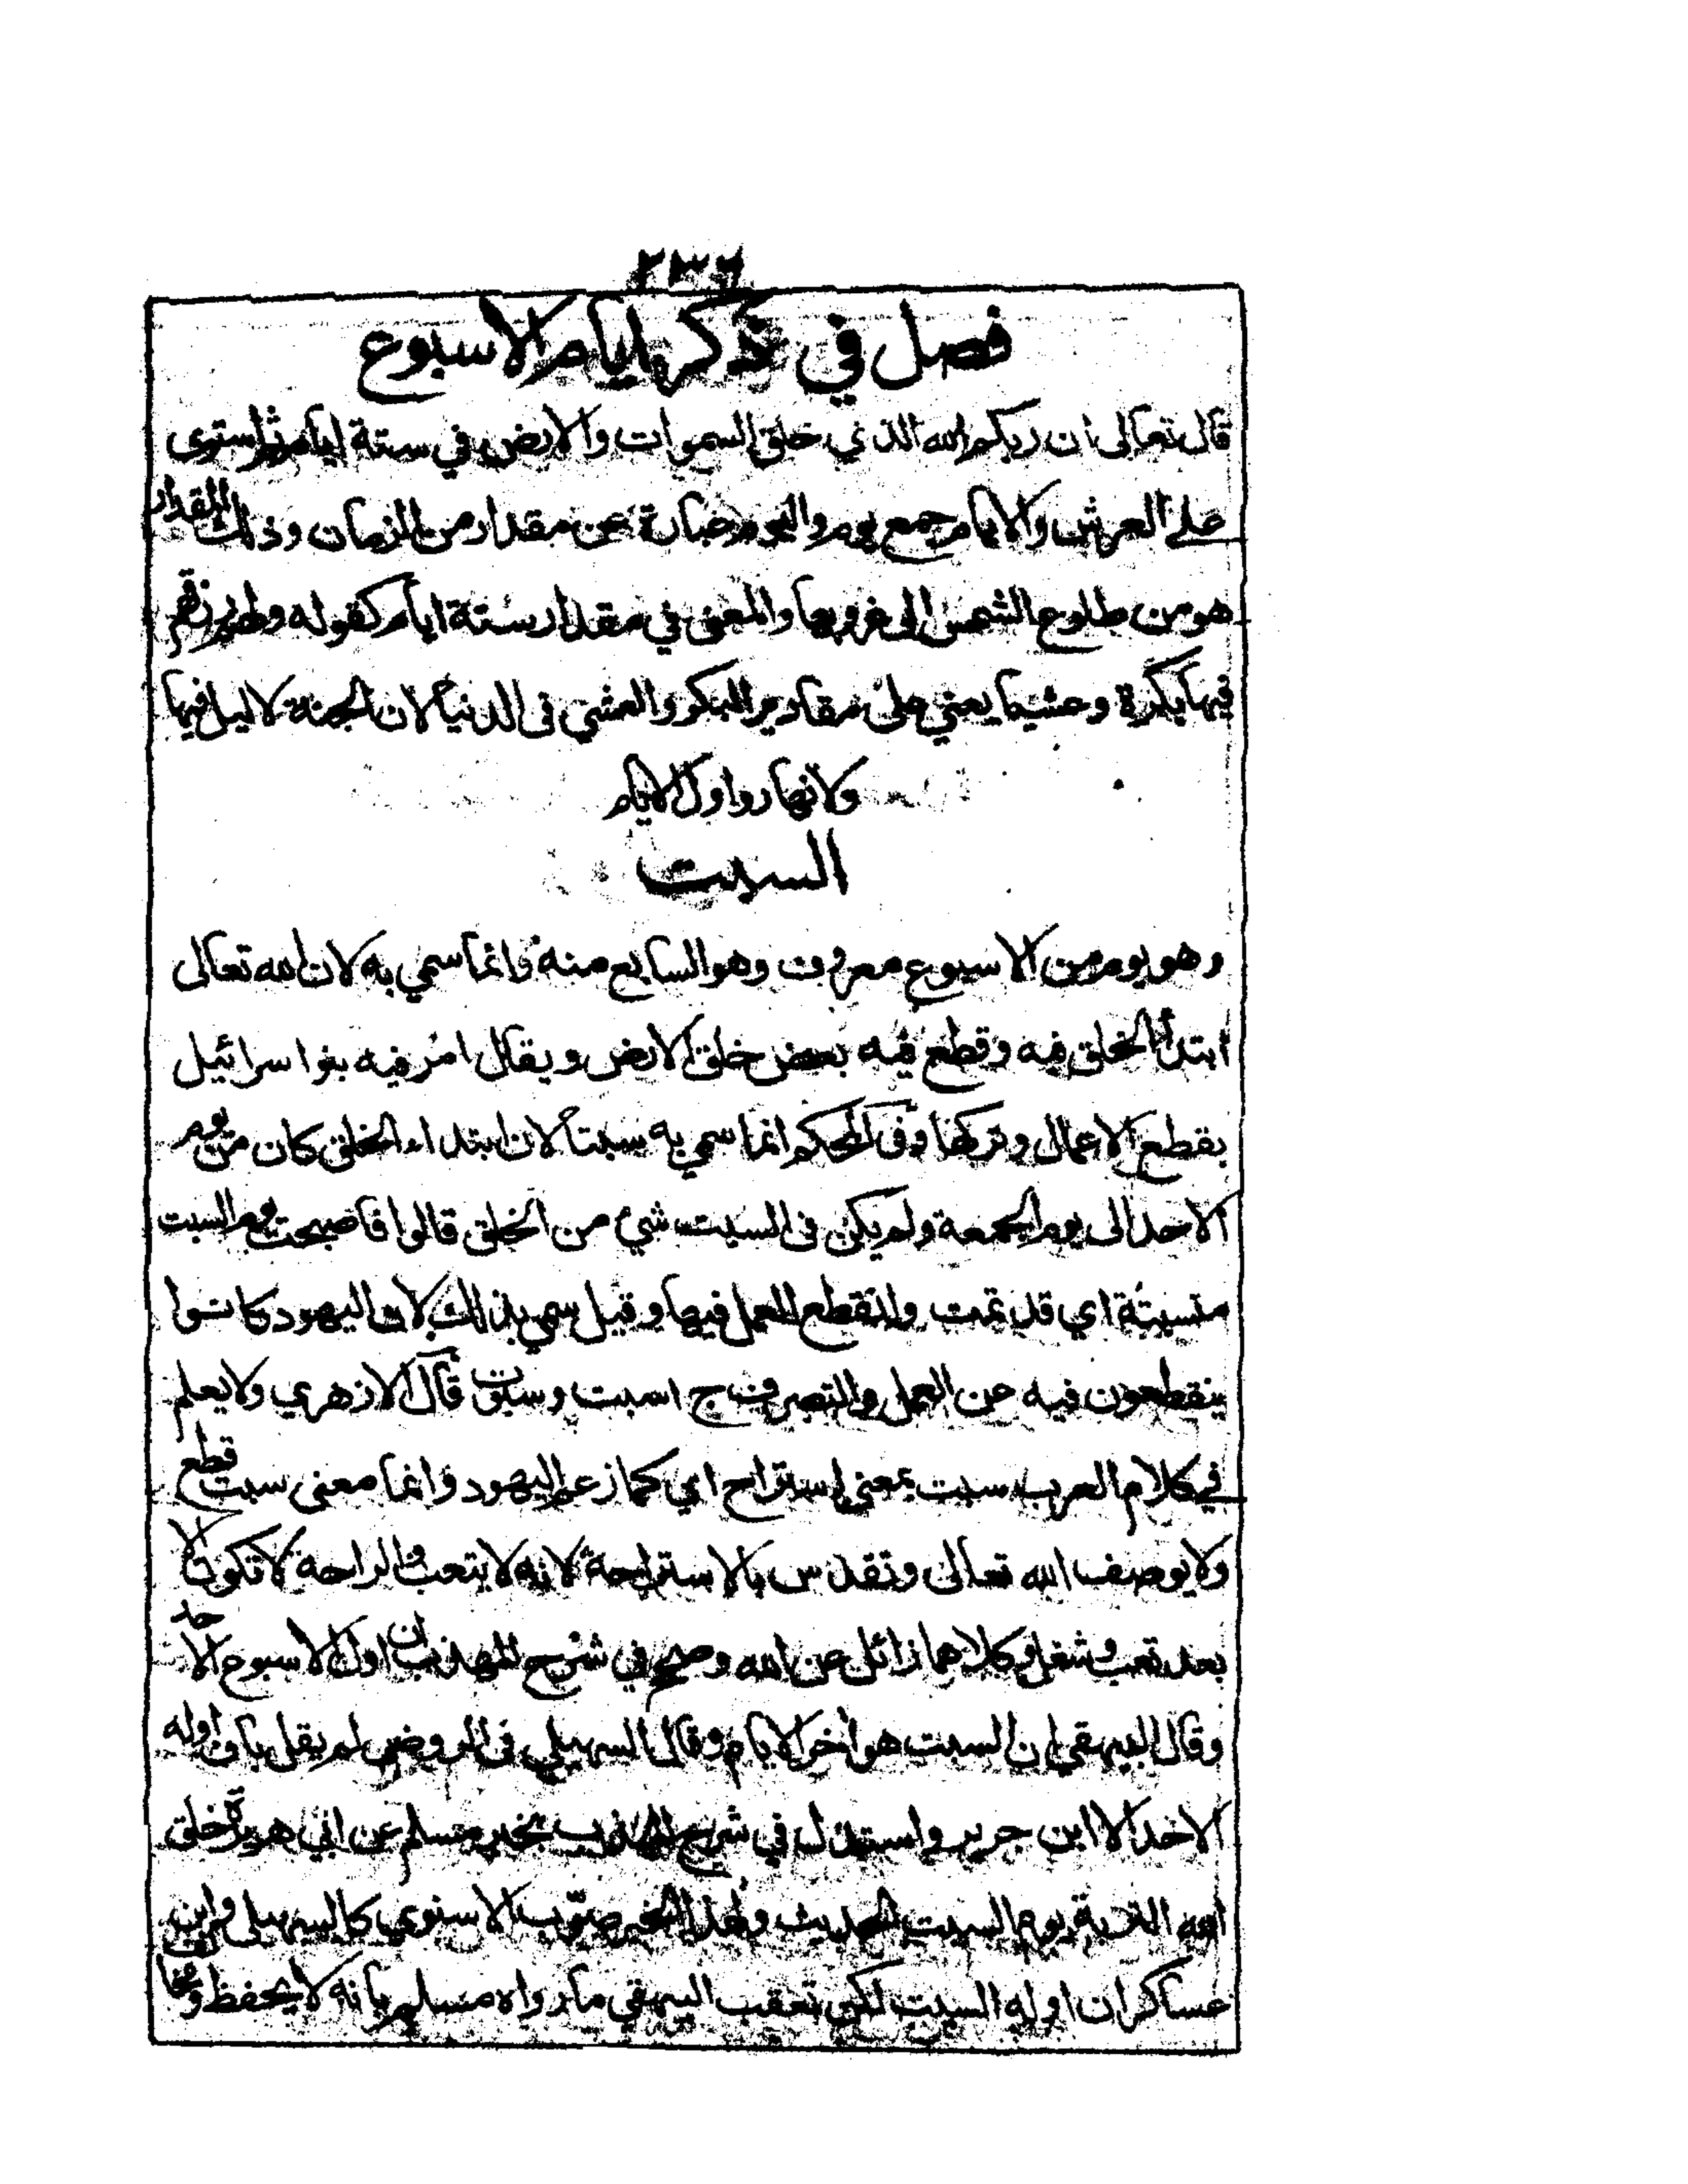 ٢٣٦
فصل في ذكر ايام الاسبوع
قال تعالى ان ربكم الله الذي خلق السموات والارض في ستة ايام ثم استوى
على العرش والايام جمع يوم واليوم عبارة عن مقدار من الزمان وذلك المقدار
هو من طلوع الشمس الى غروبها والمعنى في مقدار ستة ايام كقوله ولهم رزقهم
فيها بكرة وعشيا يعني على مقادير البكر والعشي فى الدنيا لان الجنة لا ليل فيها
ولا نهار واول الايام
السبت
وهو يوم من الاسبوع معروف وهو السابع منه وانما سمي به لان الله تعالى
ابتدأ الخلق فيه وقطع فيه بعض خلق الارض ويقال امر فيه بنوا سرائيل
بقطع الاعمال وتركها وفى المحكم انما سمي به سبتا لان ابتداء الخلق كان من يوم
الاحد الى يوم الجمعة ولم يكن فى السبت شيء من الخلق قالوا فاصبحت يوم السبت
منسبتة اي قد تمت وانقطع العمل فيها وقيل سمي بذلك لان اليهود كانوا
ينقطعون فيه عن العمل والتصرف ج اسبت وسبوت قال الازهري ولا يعلم
في كلام العرب سبت بمعنى استراح اي كما زعم اليهود وانما معنى سبت قطع
ولا يوصف الله تعالى وتقدس بالاستراحة لانه لا يتعب والراحة لا تكون الا
بعد تعب وشغل وكلاهما زائل عن الله وصحح في شرح المهذب ان اول الاسبوع الاحد
وقال البيهقي ان السبت هو اخر الايام وقال السهيلي فى الروض لم يقل بان اوله
الاحد الا ابن جرير واستدل في شرح المهذب بخبر مسلم عن ابي هريرة خلق
الله التربة يوم السبت الحديث ولهذا الخبر صوّب الاسنوي كالسهيلى وابن
عساكر ان اوله السبت لكن تعقب البيهقي ما رواه مسلم بانه لا يحفظ